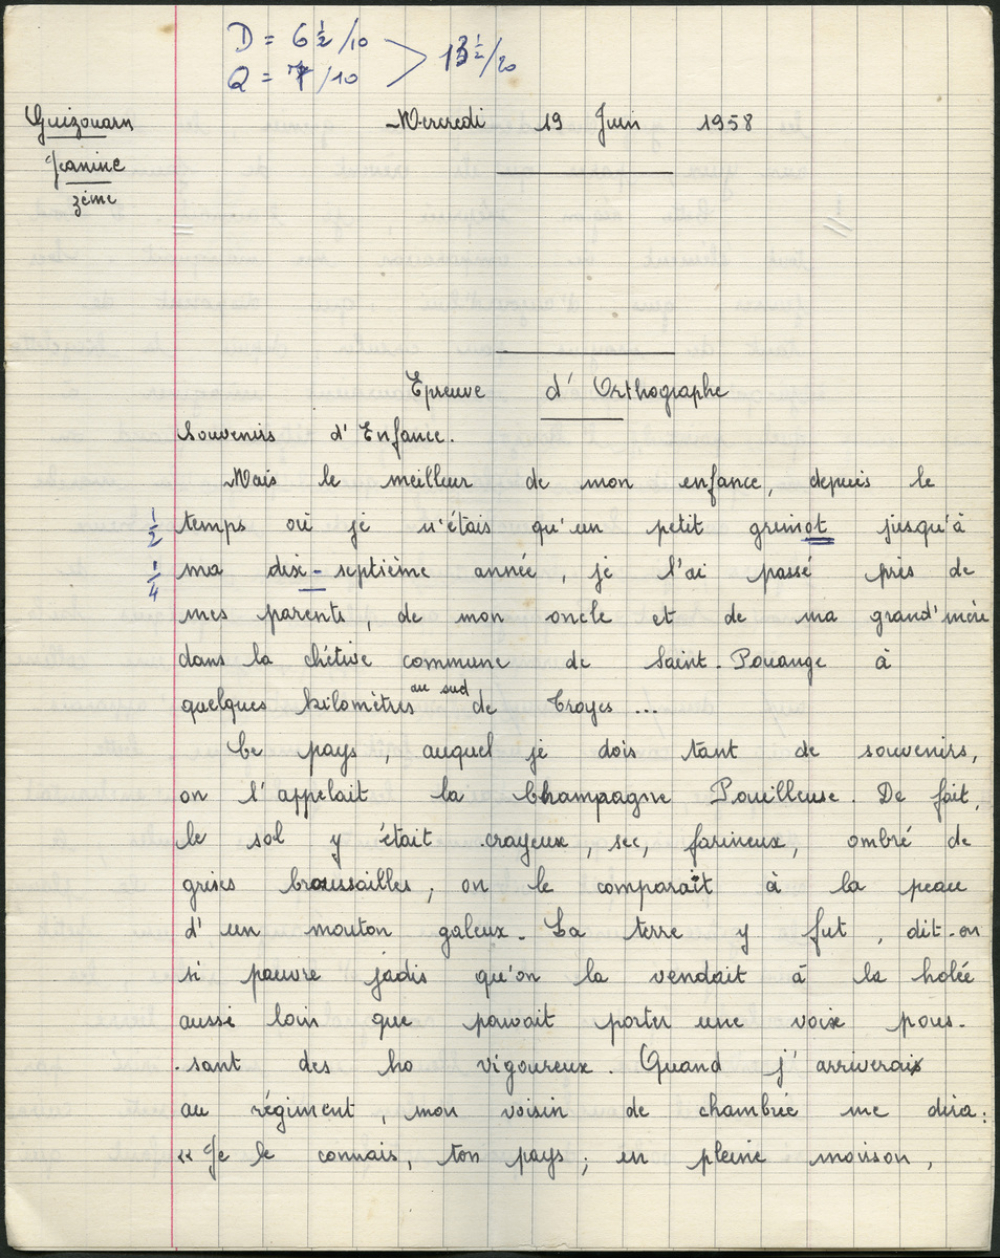 D = 6 ½ /10
Q = 7 /10
13 ½ /20
Guizouarn
Jeanine
3ème
Mercredi 19 Juin 1958
Epreuve d'Orthographe
Souvenirs d'Enfance.
Mais le meilleur de mon enfance, depuis le
½ temps où je n'étais qu'un petit grimot jusqu'à
¼ ma dix-septième année, je l'ai passé près de
mes parents, de mon oncle et de ma grand'mère
dans la chétive commune de Saint-Pouange à
quelques kilomètres au sud de Troyes ...
Ce pays, auquel je dois tant de souvenirs,
on l'appelait la Champagne Pouilleuse. De fait,
le sol y était crayeux, sec, farineux, ombré de
grises broussailles, on le comparait à la peau
d'un mouton galeux. La terre y fut, dit-on
si pauvre jadis qu'on la vendait à la holée
aussi loin que pouvait porter une voix pous-
sant des ho vigoureux. Quand j'arriverai
au régiment, mon voisin de chambrée me dira:
« Je le connais, ton pays; en pleine moisson,